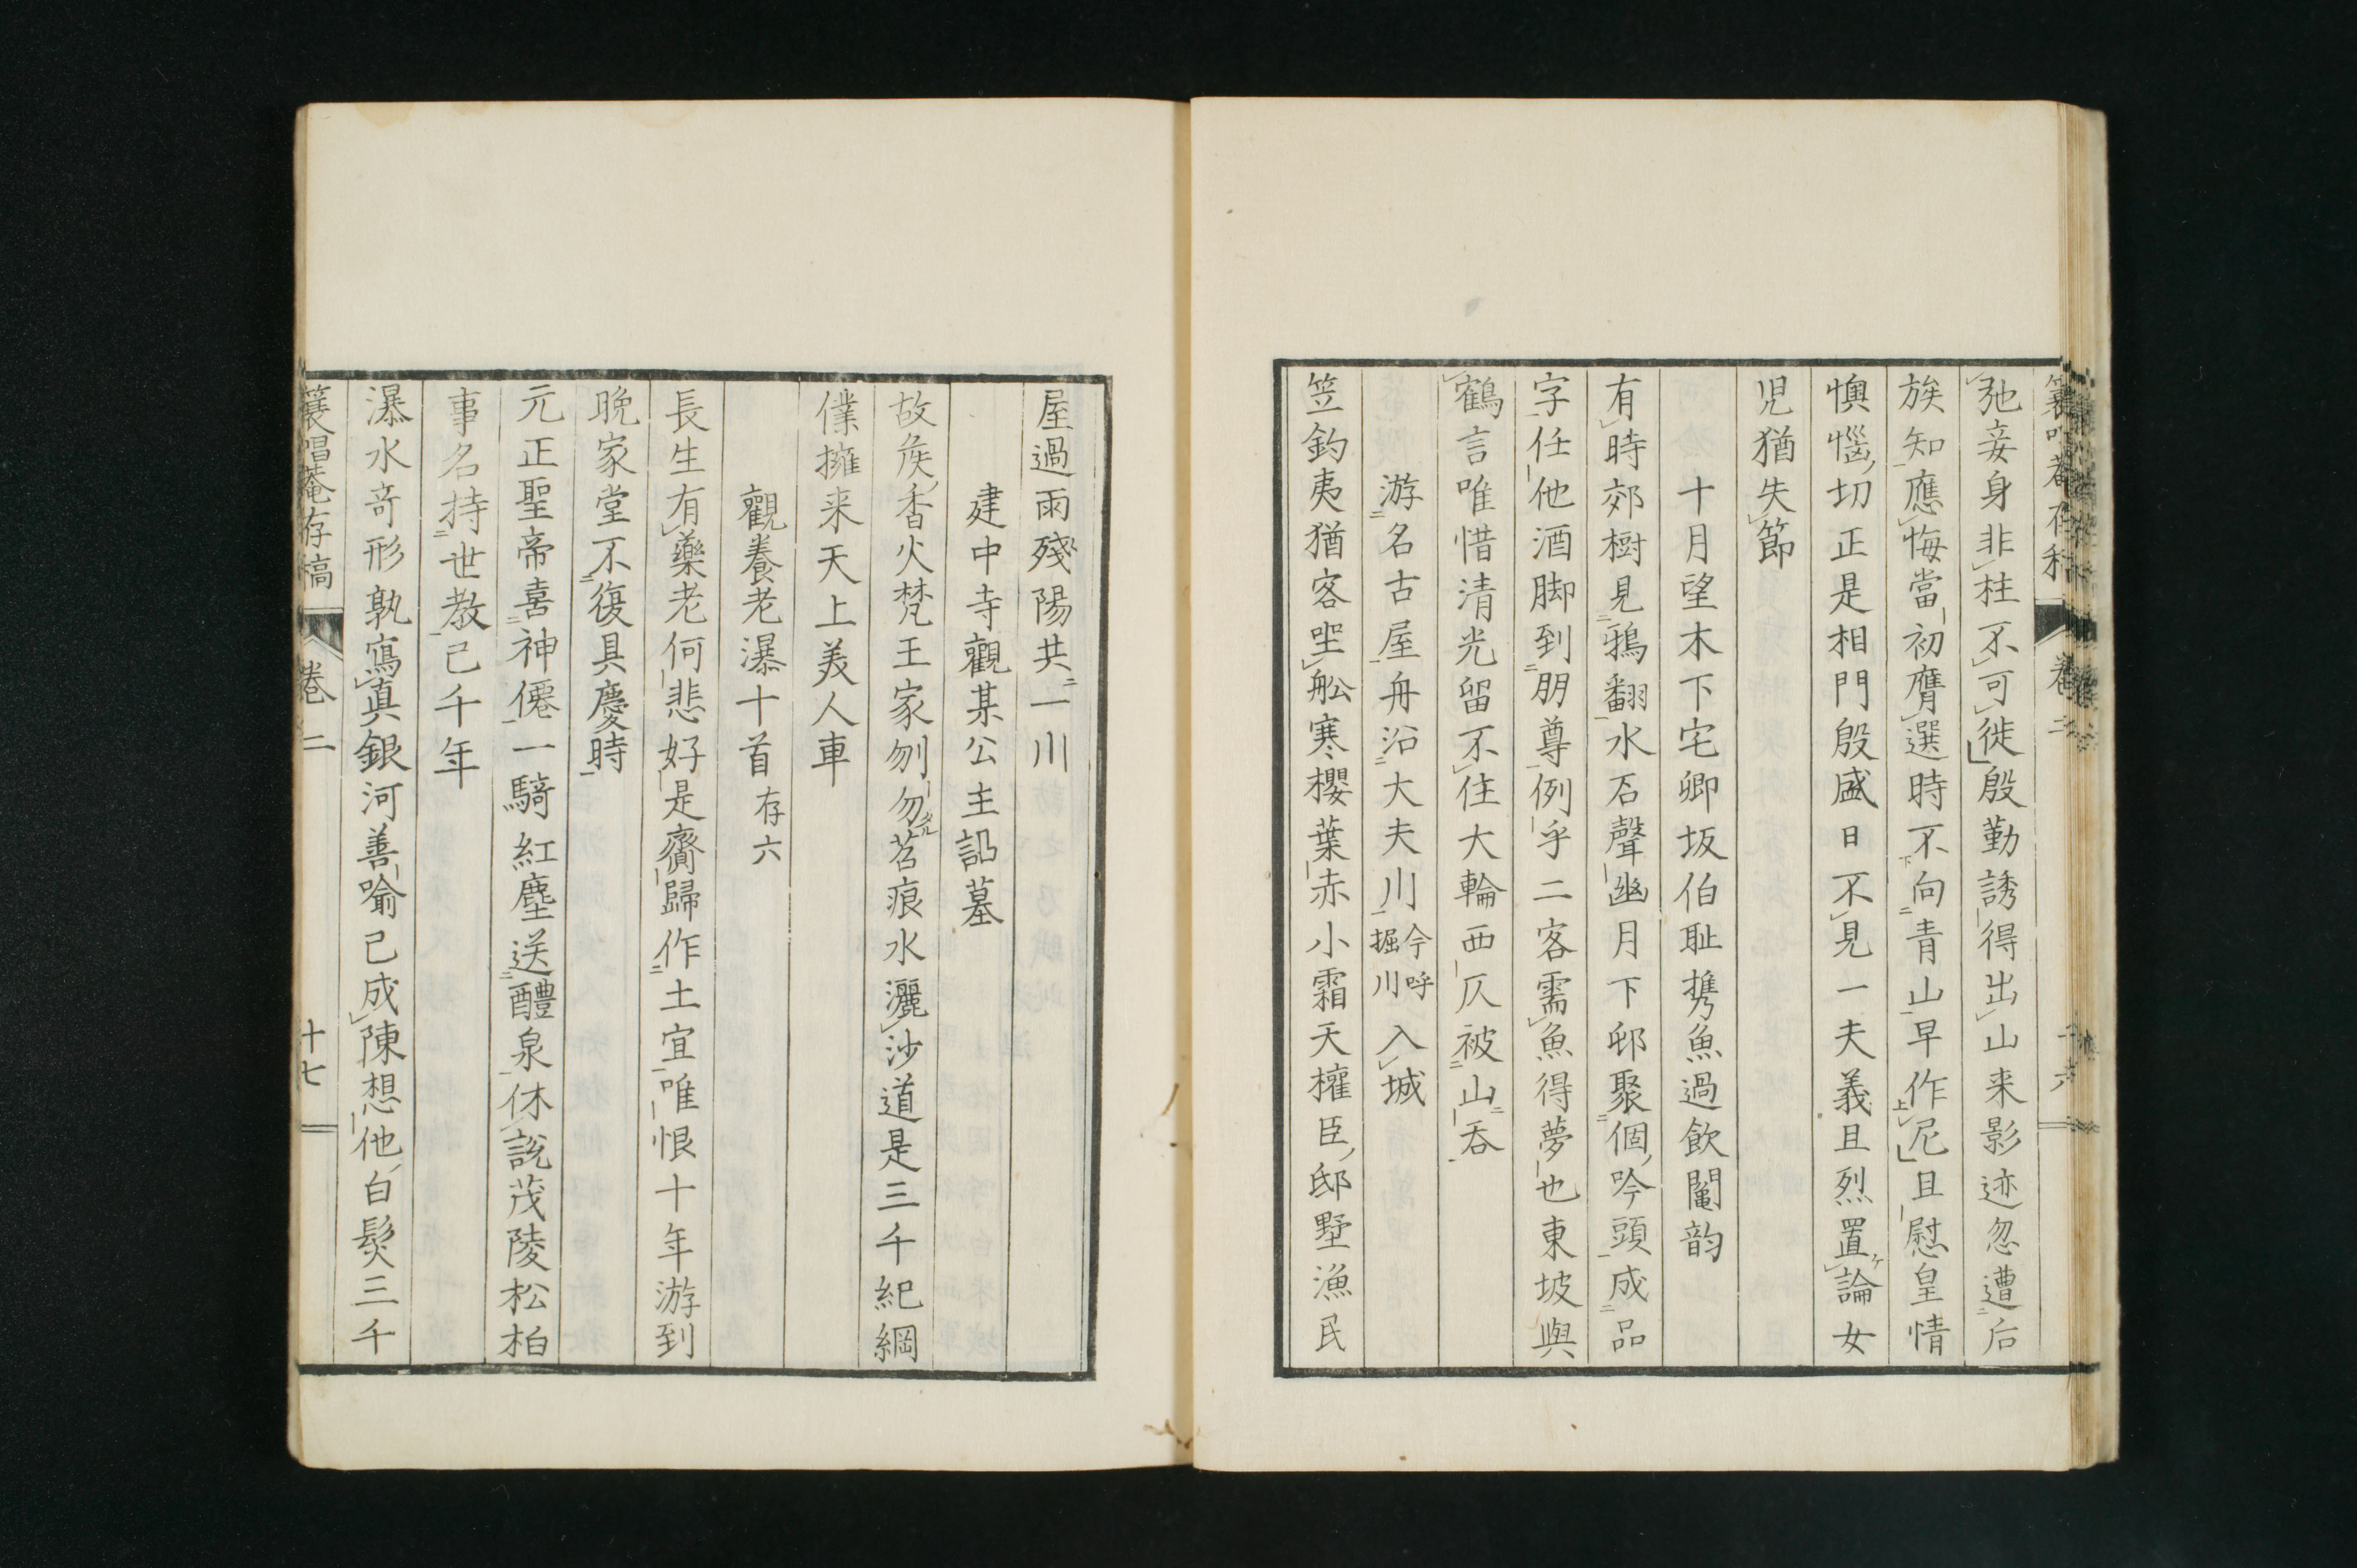 弛妾身非柱不可徙殷勤誘得出山来影迹忽遭后
族知應悔當初膺選時不向青山早作尼且慰皇情
懊惱切正是相門殷盛日不見一夫義且烈置論女
児猶失節
十月望木下宅卿坂伯耻携魚過飲鬮韵
有時郊樹見鴉翻水石聲幽月下邨聚個吟頭成品
字任他酒脚到朋尊例乎二客需魚得夢也東坡與
鶴言唯惜清光留不住大輪西仄被山呑
游名古屋舟沿大夫川今呼掘川入城
笠釣夷猶客坐舩寒櫻葉赤小霜天權臣邸墅漁民
卷二
屋過雨殘陽共一川
建中寺觀某公主詔墓
故矦香火梵王家刎勿苔痕水灑沙道是三千紀綱
僕擁来天上美人車
觀養老瀑十首存六
長生有藥老何悲好是齎歸作土宜唯恨十年游到
晩家堂不復具慶時
元正聖帝喜神僊一騎紅塵送醴泉休說茂陵松柏
事名持世教已千年
瀑水奇形孰寫真銀河善喻已成陳想他白髮三千
簑唱菴存稿 卷二 十七